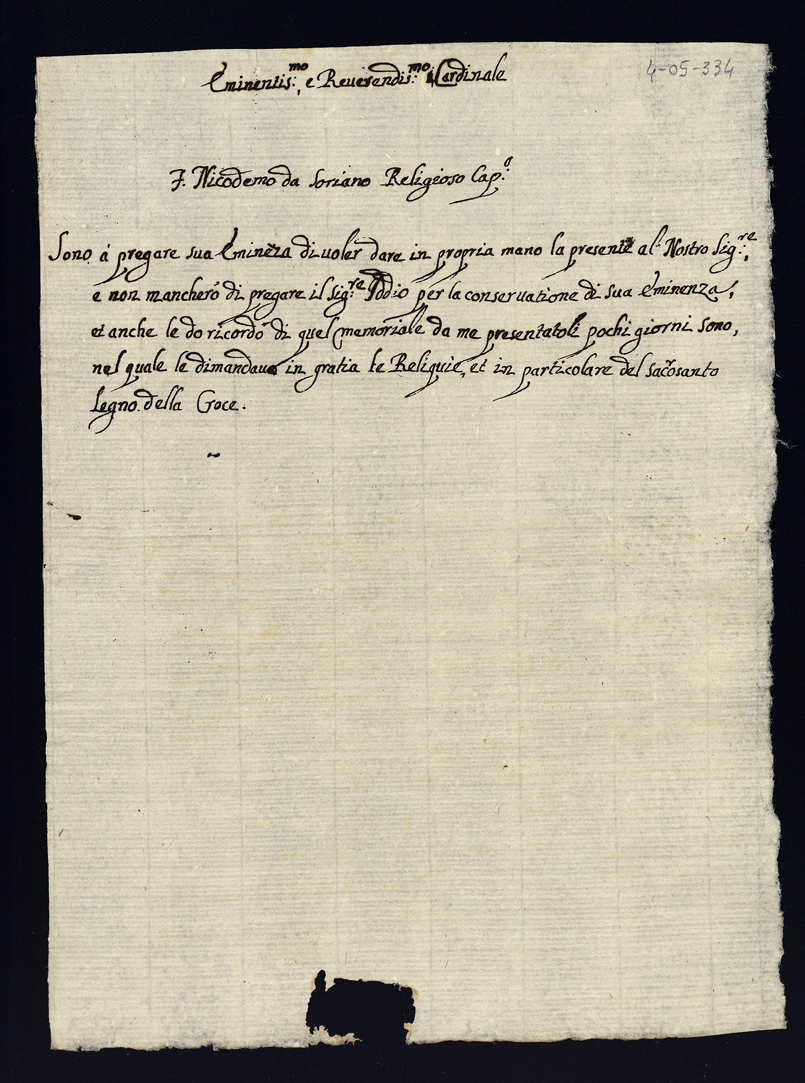 4-05-334
Eminentis:mo, e Reverendis:mo Cardinale
F. Nicodemo da Soriano Religioso Cap:o
Sono á pregare sua Eminẽza di uoler dare in propria mano la presente al Nostro Sig:re,
e non mancheró di pregare il sig:re Iddio per la conseruatione di sua Eminenza,
et anche le do ricordo di quel memoriale da me presentatoli pochi giorni sono,
nel quale le dimandaua in gratia le Reliquie, et in particolare del sacrosanto
Legno della Croce.